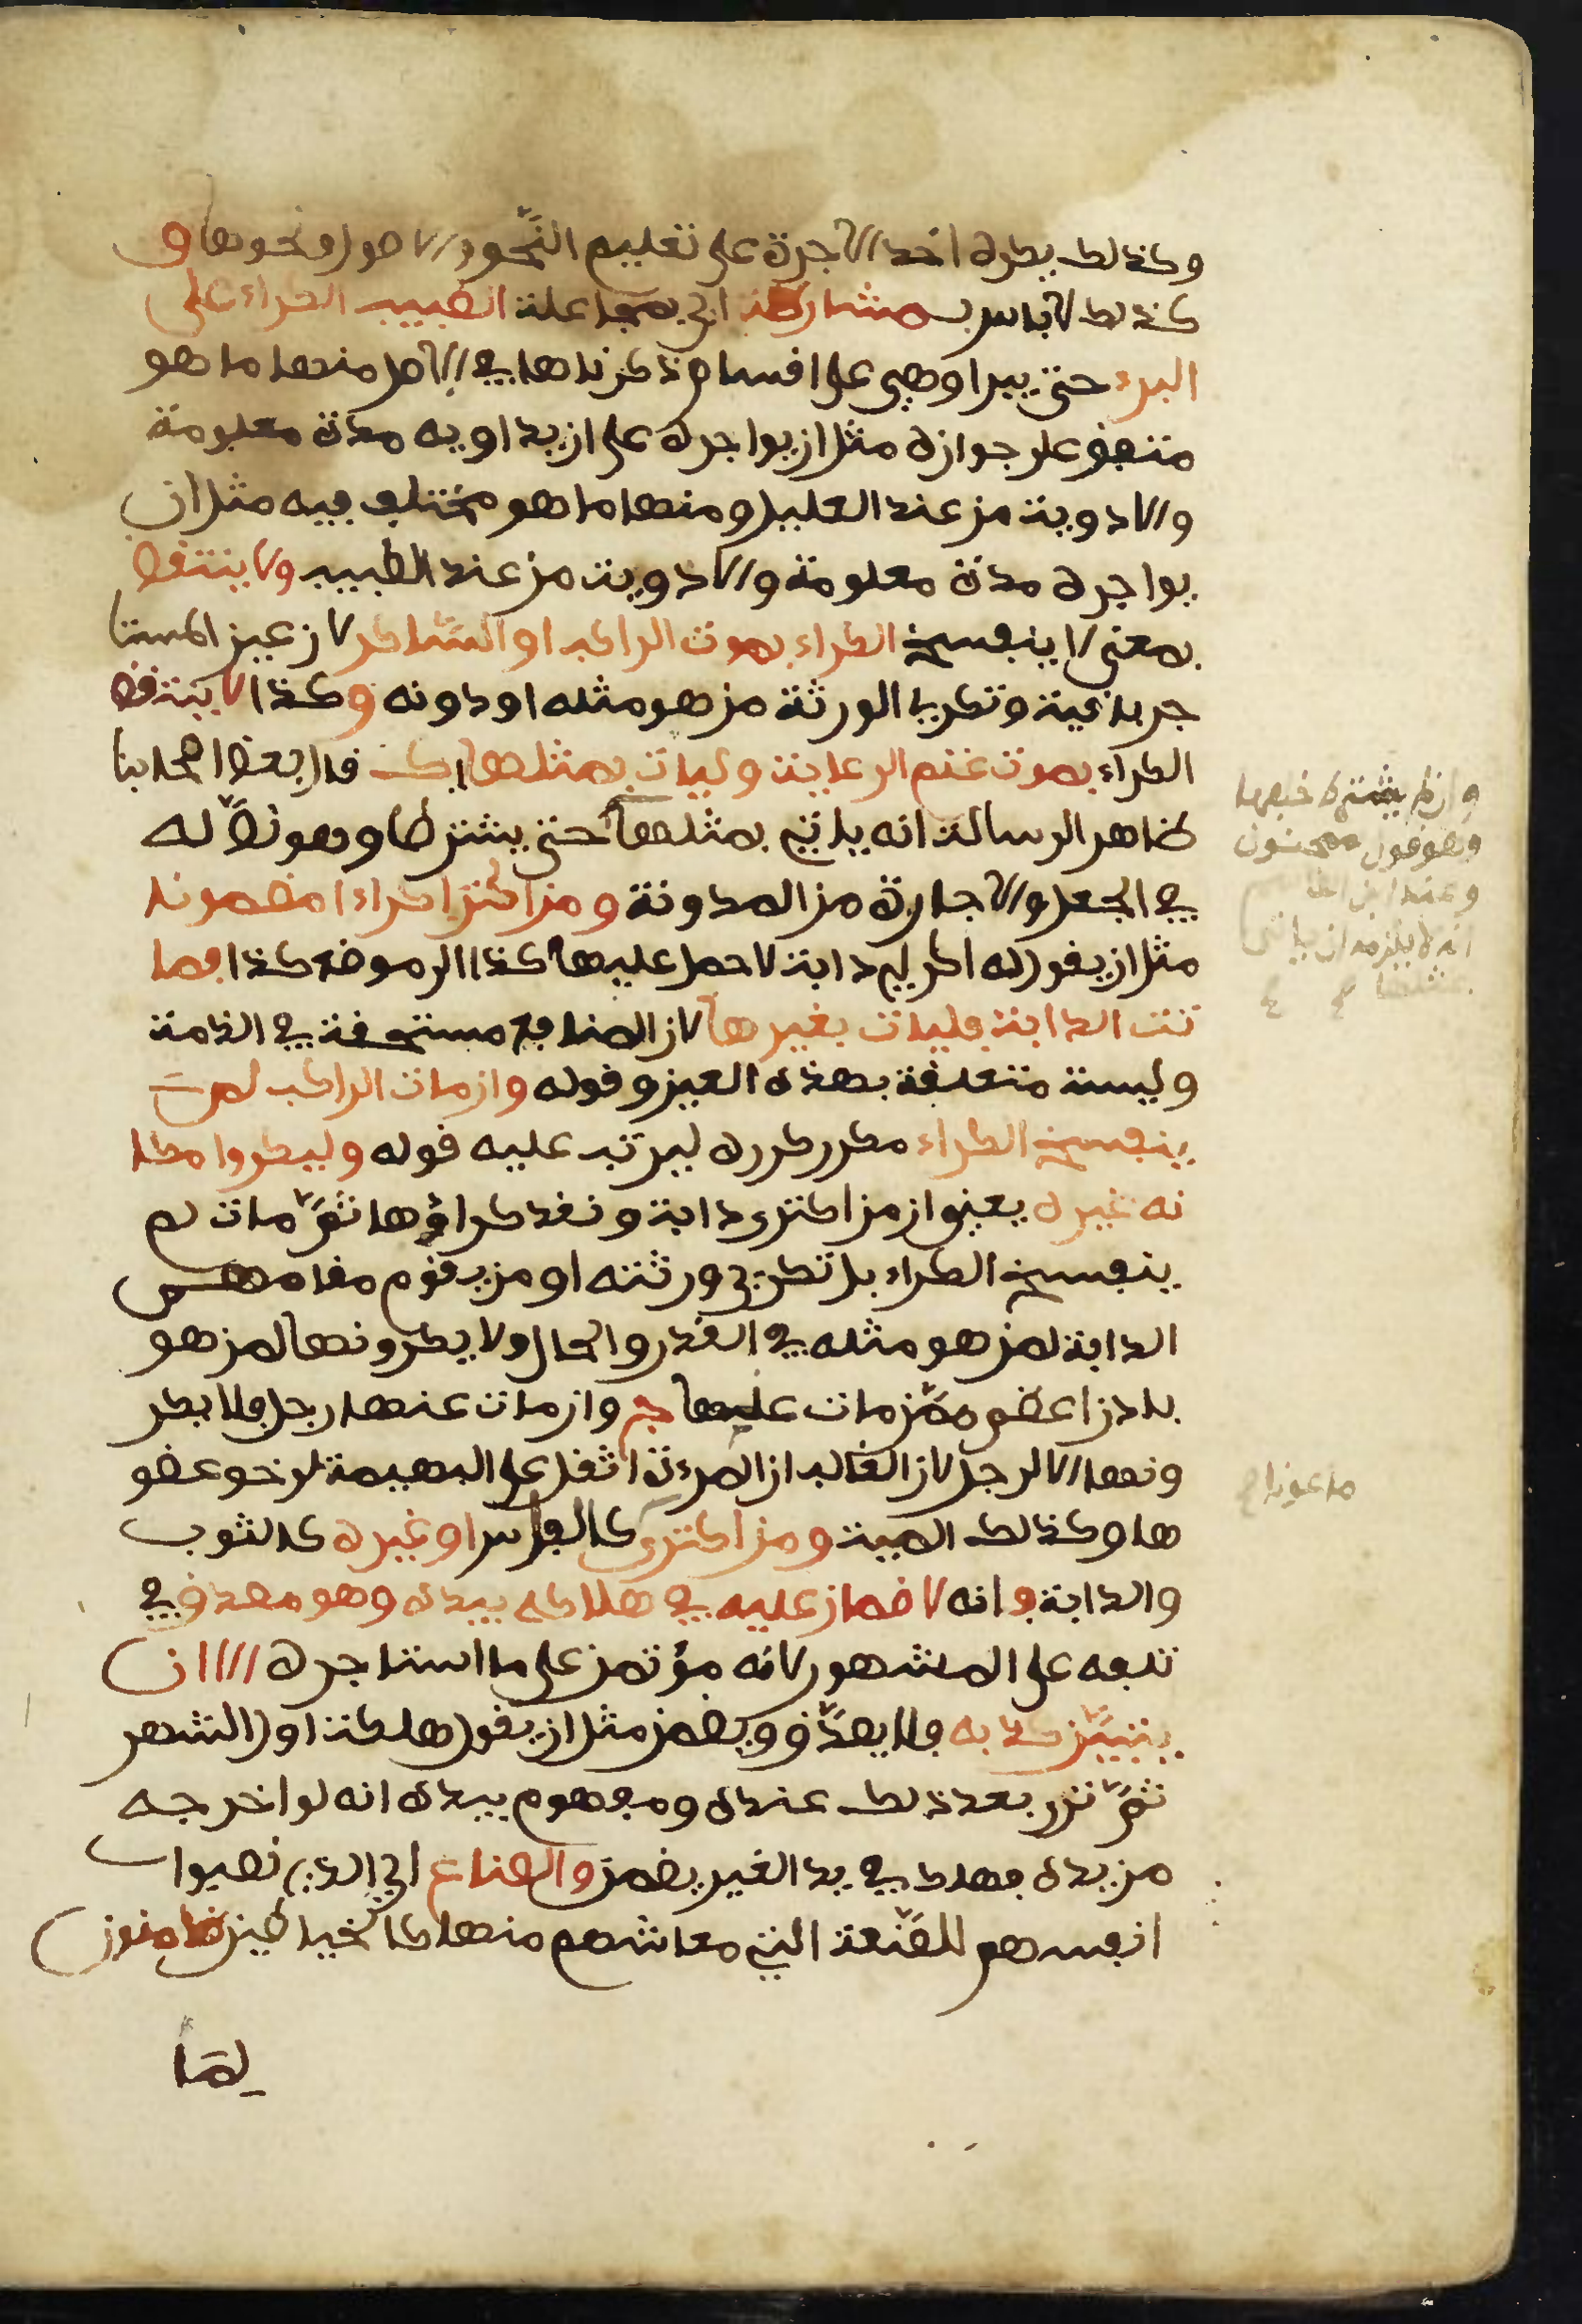 وكذلك يكره أخذ الاجرة على تعليم النّحو والاصول ونحوها و
كذلك لا باس بمشارطة اي بمجاعلة الطبيب الكراء على
البرء حتى يبرا وهي على اقسام ذكرناها في الاصل منها ما هو
متفق على جوازه مثل ان يواجره على ان يداويه مدة معلومة
والادوية من عند العليل ومنها ما هو مختلف فيه مثل ان
يواجره مدة معلومة والادوية من عند الطبيب ولا ينتقض
بمعنى لا ينفسخ الكراء بموت الراكب او السّاكن لان عين المستا
جر باقية وتكري الورثة من هو مثله او دونه وكذا لا ينتقض
الكراء بموت غنم الرعاية وليات بمثلها ك قال بعض اصحابنا
ظاهر الرسالة انه ياتي بمثلها حتى يشترطا وهو تأوّله
في الجعل والاجارة من المدونة ومن اكترى كراءا مضمونا
مثل ان يقول له اكر لي دابة لاحمل عليها كذا الى موضع كذا فما
تت الدابة فليات بغيرها لان المنافع مستحقة في الذمة
وليست متعلقة بهذه العين وقوله وان مات الراكب لم
ينفسخ الكراء مكرر كرره ليرتب عليه قوله وليكروا مكا
نه غيره يعني ان من اكترى دابة ونقد كراؤها ثمّ مات لم
ينفسخ الكراء بل تكري ورثته او من يقوم مقامهم
الدابة لمن هو مثله في القدر والحال ولا يكرونها لمن هو
بادن اعظم ممّن مات عليها ج وان مات عنها رجل فلا يكر
ونها الا لرجل لان الغالب ان المرءة اثقل على البهيمة لرخو عضو
ها وكذلك الميت ومن اكترى كالفاس او غيره كالثوب
والدابة فانه لا ضمان عليه في هلاكه بيده وهو مصدق في
تلفه على المشهور لانه مؤتمن على ما استاجره الا ان
يتبيّن كذبه فلا يصدّق ويضمن مثل ان يقول هلكت اول الشهر
ثمّ ترى بعد ذلك عنده ومفهوم بيده انه لو اخرجه
من يده فهلك في يد الغير يضمن والصناع اي الذين نصبوا
انفسهم للصّنعة التي معاشهم منها كالخياطين ضامنون
لما
وان لم يشترط خلفها